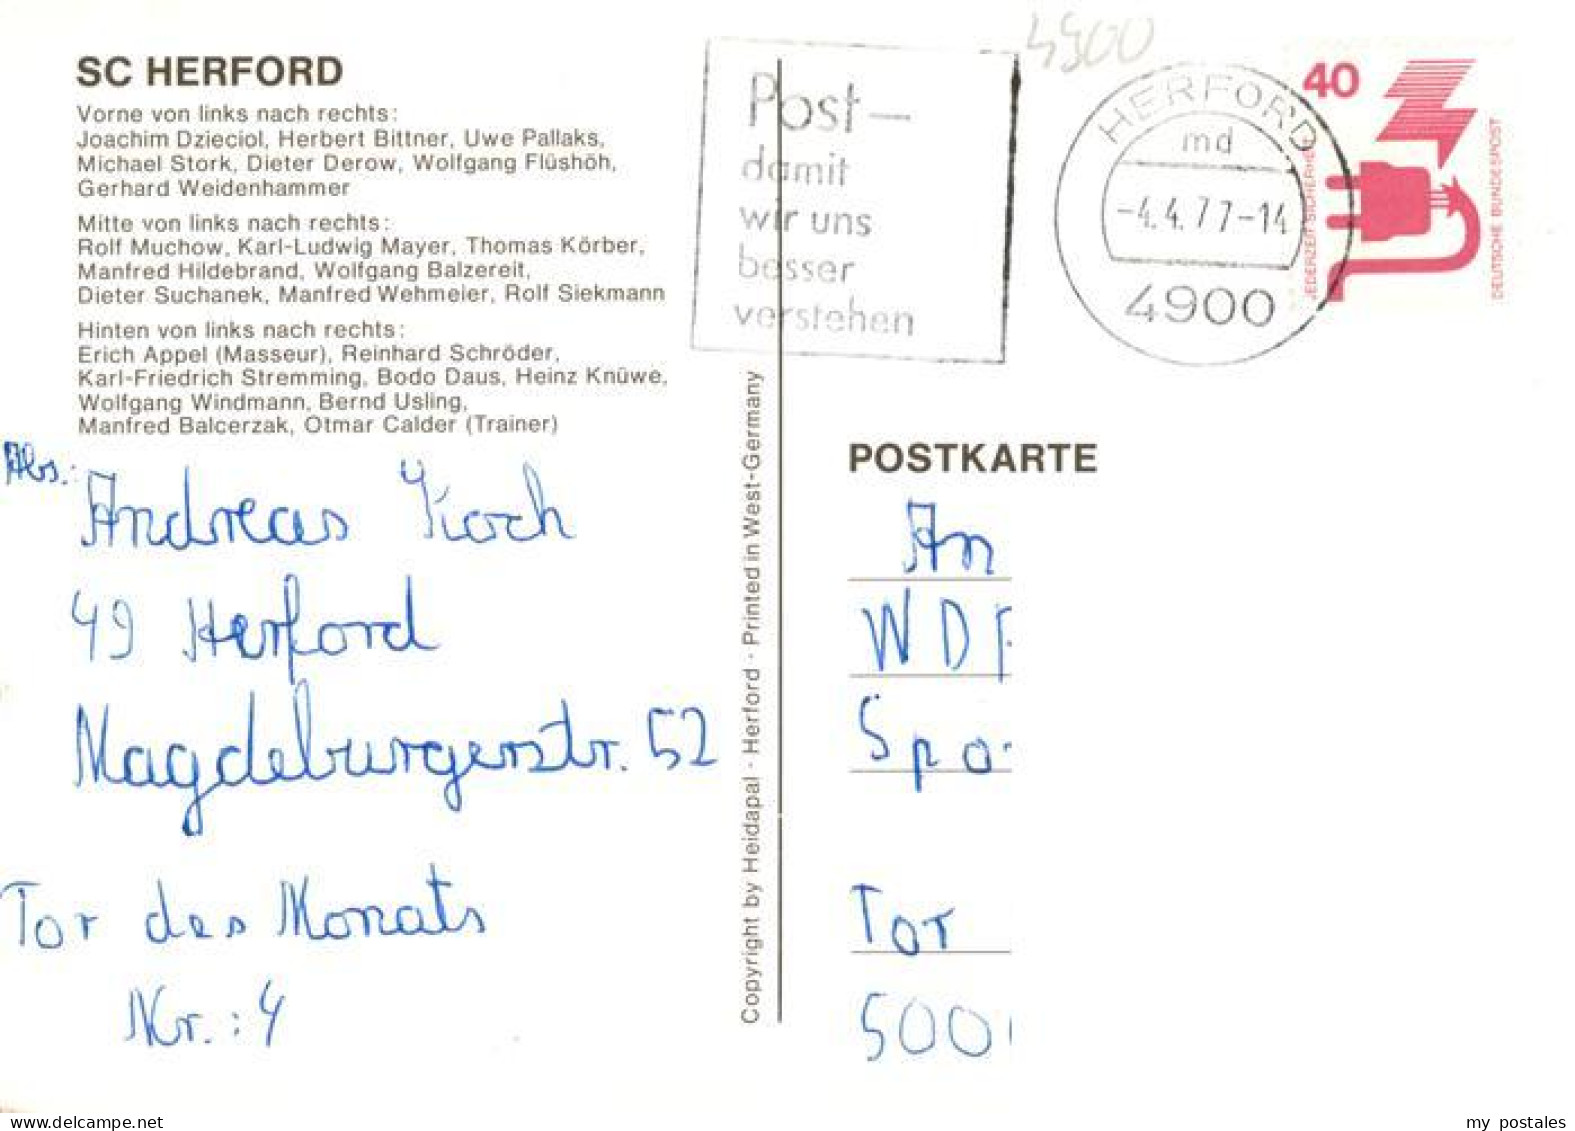 SC HERFORD
Vorne von links nach rechts:
Joachim Dzieciol, Herbert Bittner, Uwe Pallaks,
Michael Stork, Dieter Derow, Wolfgang Flüshöh,
Gerhard Weidenhammer
Mitte von links nach rechts:
Rolf Muchow, Karl-Ludwig Mayer, Thomas Körber,
Manfred Hildebrand, Wolfgang Balzereit,
Dieter Suchanek, Manfred Wehmeier, Rolf Siekmann
Hinten von links nach rechts:
Erich Appel (Masseur), Reinhard Schröder,
Karl-Friedrich Stremming, Bodo Daus, Heinz Knüwe,
Wolfgang Windmann, Bernd Usling,
Manfred Balcerzak, Otmar Calder (Trainer)
Abs.:
Andreas Koch
49 Herford
Magdeburgerstr. 52
Tor des Monats
Nr.: 4
Copyright by Heidapal · Herford · Printed in West-Germany
Post–
damit
wir uns
besser
verstehen
4900
HERFORD
md
-4.4.77-14
4900
40
JEDERZEIT SICHERHEIT
DEUTSCHE BUNDESPOST
POSTKARTE
An
WD
Spo
Tor
500
delcampe.net
my postales